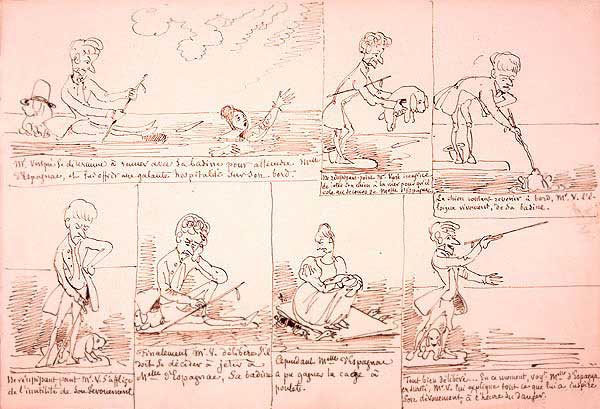 Mr. Vertpré se détermine à ramer avec sa badine pour atteindre Melle
d'Espagnac, et lui offrir une galante hospitalité sur son bord.
Ne réussissant point Mr. Vert
de jeter son chien à la mer pour qu'il
vole au secours de Melle d'Espagnac.
Le chien voulant revenir à bord, Mr. V. l'é-
loigne vivement, de sa badine.
Ne réussissant point Mr. V. s'afflige
de l'inutilité de son dévouement
Finalement Mr. V. délibère s'il
doit se décider à jeter à
Melle d'Espagnac, sa badine
Cependant Melle d'Espagnac
a pu gagner la cage à
poulets.
Tout bien délibéré... En ce moment, voyt Melle d'Espagnac
Mr. V. lui explique tout ce que lui a inspiré
son dévouement à l'heure du danger.